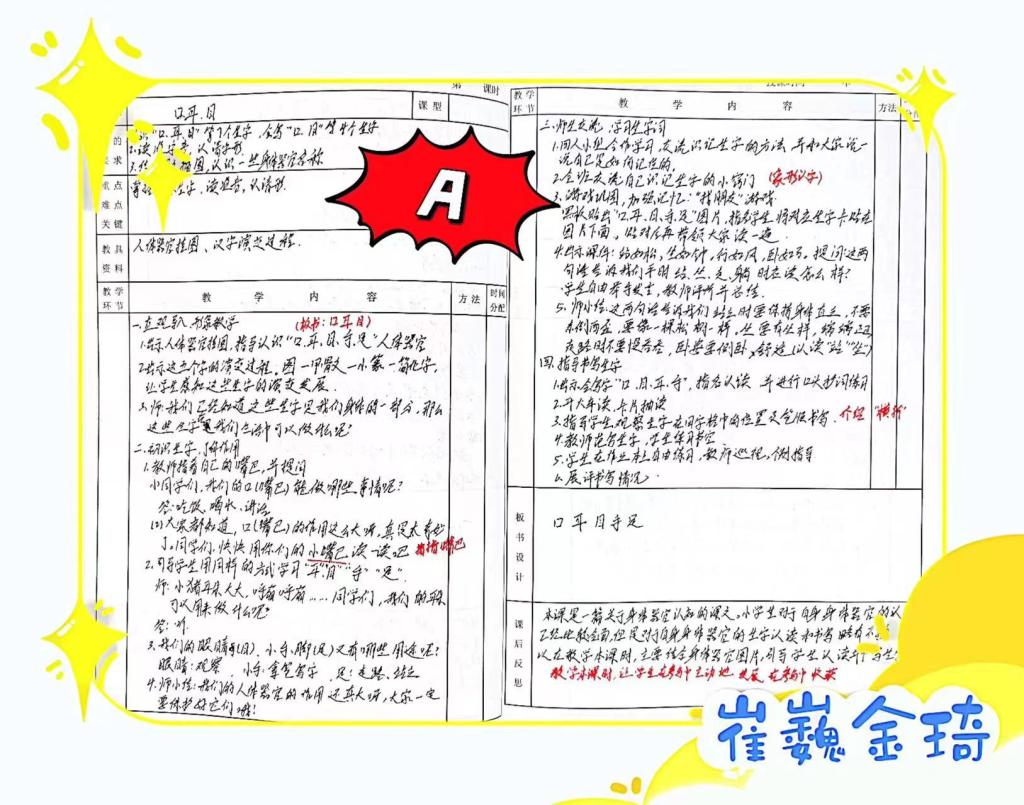 第 课时
口耳目
课型
的
要求
1.认"口、耳、目"等7个生字,会写"口、目"等4个生字
2.读准字音,认清字形
3.结 挂图,认识一些身体器官名称
重点
难点
关键
掌 生字,读准音,认清形.
教具
资料
人体器官挂图、汉字演变过程.
教学环节
教 学 内 容
方法
时间分配
一.直观导入 形象教学 (板书:口耳目)
1.出示人体器官挂图,指导认识"口、耳、目、手、足"人体器官
2.出示这五个字的演变过程。图—甲骨文—小篆—简化字,
让学生感知这些生字的演变发展.
3.师:我们已经知道这些生字是我们身体的一部分,那么
这些生字在我们生活中可以做什么呢?
二.初识生字,了解作用
1.教师指着自己的嘴巴,并提问
小同学们,我们的口(嘴巴)能做哪些事情呢?
答:吃饭、喝水、讲话
(1)大家都知道,口(嘴巴)的作用这么大呀,真是太奇妙
了,同学们,快快用你们的小嘴巴读一读吧 指指嘴巴
2.引导学生用同样的方式学习"耳""目""手""足".
师:小猪耳朵大大,呼扇呼扇……同学们,我们的耳朵
可以用来做什么呢?
答:听.
3.我们的眼睛(目)、小手、脚(足)又有哪些用途呢?
眼睛:观察 小手:拿笔写字 足:走路、站立
4.师小结:我们的人体器官的作用还真大呀,大家一定
要保护好它们哦!
教学环节
教 学 内 容
方法
三.师生交流,学习生字词
1.四人小组合作学习,交流识记生字的方法,并和大家说一
说自己是如何记住的.
2.全班交流自己识记生字的小窍门 (象形识字)
3.游戏巩固,加强记忆:"找朋友"游戏
黑板贴出"口、耳、目、手、足"图片,指名学生将对应生字卡贴在
图片下面,贴对后再带领大家读一遍.
4.出示课件:站如松,坐如钟,行如风,卧如弓。提问:这两
句话告诉我们平时站、坐、走、躺时应该怎么样?
学生自由举手发言,教师评价并总结.
5.师小结:这两句话告诉我们站立时要保持身体直立,不要
东倒西歪,要像一棵松树一样。坐要有坐样,端端正正
走路时不要慢吞吞,卧要要侧卧,舒适(认读"站""坐")
四.指导书写生字
1.出示会写字"口、目、耳、手",指名认读,并进行口头扩词练习
2.开火车读,卡片抽读
3.指导学生,观察生字在田字格中的位置及笔顺书写. 介绍"横折"
4.教师范写生字,学生练习书空
5.学生在作业本上自由练习,教师巡视,个别指导
6.展评书写情况.
板书设计
口耳目手足
课后反思
本课是一篇关于身体器官认知的课文,小学生对于自身身体器官的认
已经比较全面,但是对于身体器官的生字认读和书写 有不
以在教学本课时,主要结合身体器官图片,引导学生认读
教学本课时,让学生在参与中主动地 发展,在参与中收获
A
崔巍金琦